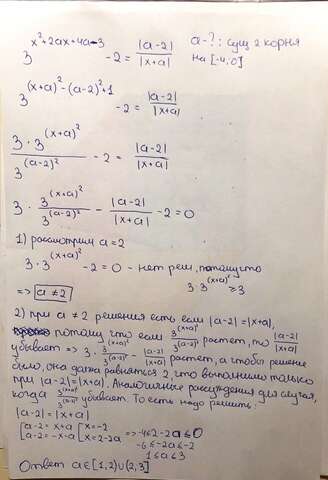 3^(x²+2ax+4a-3) - 2 = |a-2| / |x+a|
a-? : сущ 2 корня на [-4;0]
3^((x+a)²-(a-2)²+1) - 2 = |a-2| / |x+a|
3·3^((x+a)²) / 3^((a-2)²) - 2 = |a-2| / |x+a|
3 · 3^((x+a)²) / 3^((a-2)²) - |a-2| / |x+a| - 2 = 0
1) рассмотрим a=2
3·3^((x+a)²) - 2 = 0 - нет реш, потому что
3·3^((x+a)²) ≥ 3
=> a ≠ 2
2) при a ≠ 2 решения есть если |a-2| = |x+a|,
потому что если 3^((x+a)²) / 3^((a-2)²) растет, то |a-2| / |x+a|
убывает => 3 · 3^((x+a)²) / 3^((a-2)²) - |a-2| / |x+a| растет, а чтобы решение
было, она должна равняться 2, что выполнимо только
при |a-2| = |x+a|. Аналогичные рассуждения для случая,
когда 3^((x+a)²) / 3^((a-2)²) убывает. То есть надо решить:
|a-2| = |x+a|
[a-2 = x+a [x=-2
[a-2 = -x-a [x=2-2a => -4≤2-2a≤0
-6≤-2a≤-2
1≤a≤3
Ответ a∈[1,2)∪(2,3]